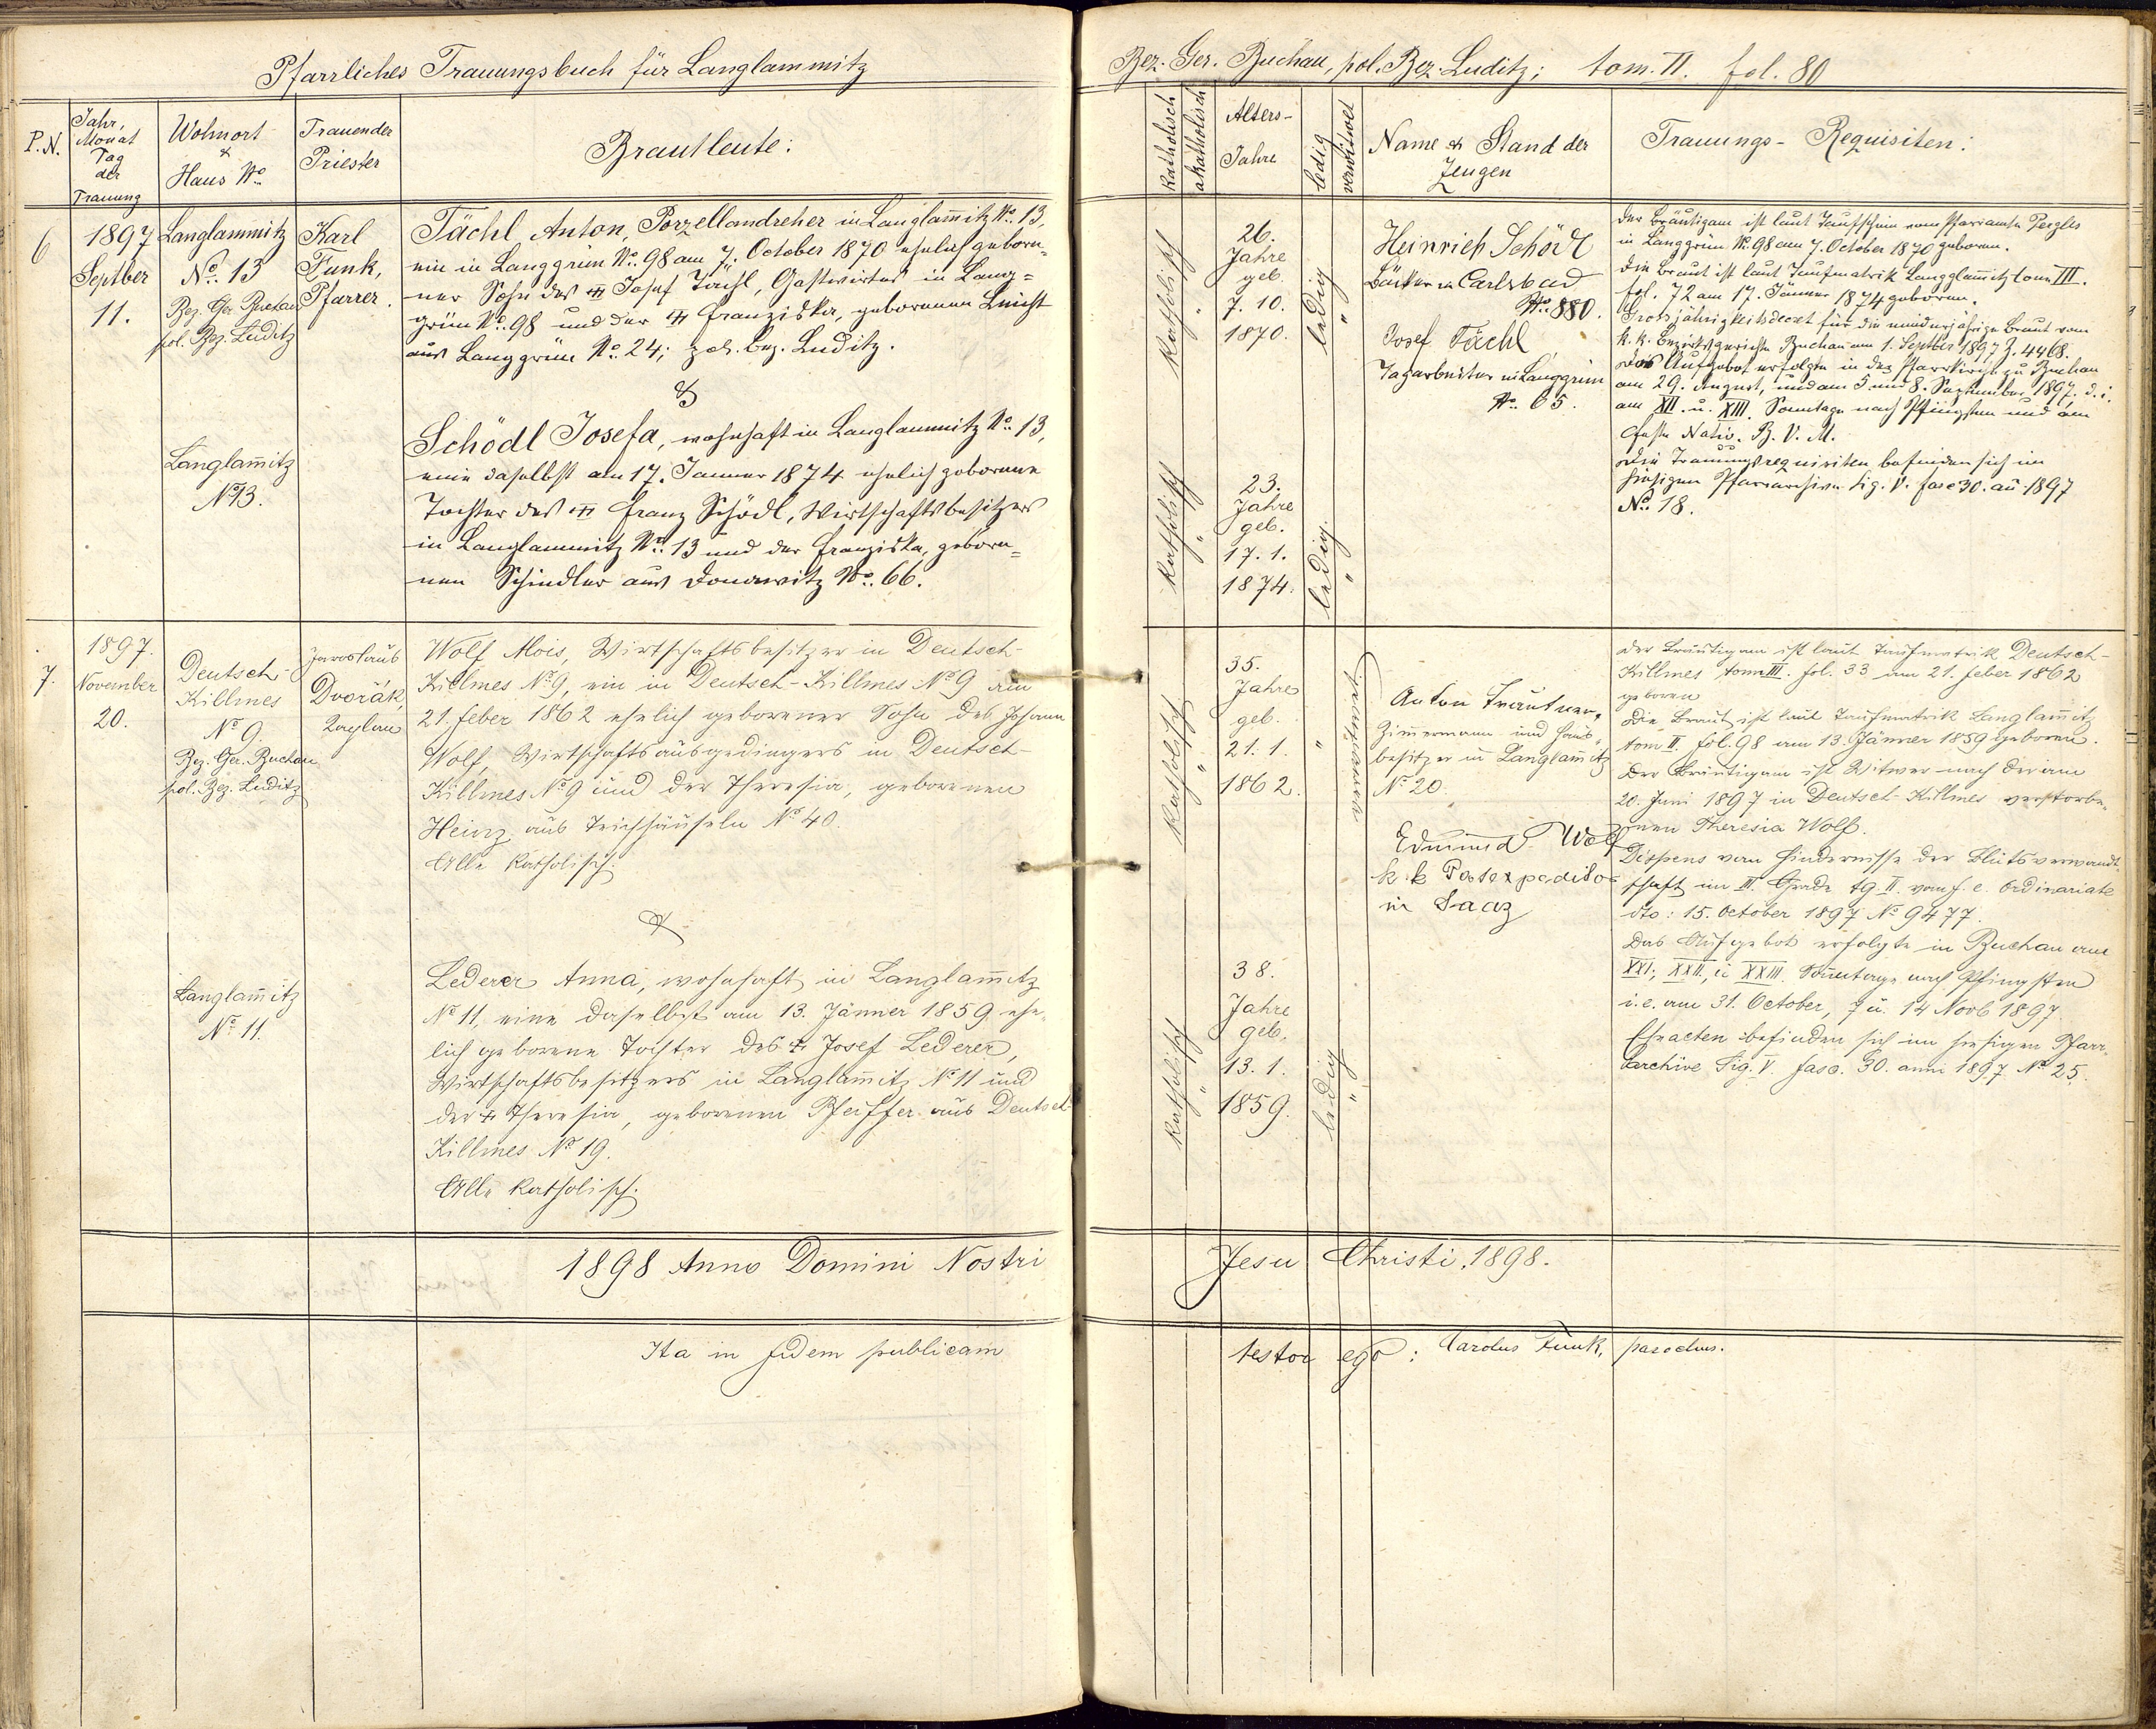 Pfarrliches Trauungsbuch für Langlammitz
P.N.
Jahr,
Monat
Tag
der
Trauung
Wohnort
&
Haus No
Trauender
Priester
Brautleute:
6
1897
Septber
11.
Langlammitz
No. 13
Bez. Ger. Buchau
pol. Bez. Luditz
Karl
Funk,
Pfarrer.
Tächl Anton, Porzellandreher in Langlam̄itz No. 13,
ein in Langgrün No. 98 am 7. October 1870 ehelich gebore-
ner Sohn des Josef Tächl, Gastwirtes in Lang=
grün No. 98 und der Franziska, geborenen Leicht
aus Langgrün No. 24; pol. Bez. Luditz.
&
Langlam̄itz
No 13.
Schödl Josefa, wohnhaft in Langlammitz No. 13,
eine daselbst am 17. Jänner 1874 ehelich geborene
Tochter des Franz Schödl, Wirtschaftsbesitzers
in Langlammitz No. 13 und der Franziska, gebore=
nen Schindler aus Donawitz No. 66.
7.
1897.
November
20.
Deutsch-
Killmes
No 9.
Bez. Ger. Buchau
pol. Bez. Luditz
Jaroslaus
Dvořák,
Kaplan
Wolf Alois, Wirtschaftsbesitzer in Deutsch-
Killmes No 9, ein in Deutsch-Killmes No 9 am
21. Feber 1862 ehelich geborener Sohn des Johann
Wolf, Wirtschaftsausgedingers in Deutsch-
Killmes No 9 und der Theresia, geborenen
Heinz aus Teichhäuseln No 40.
Alle katholisch.
&
Langlam̄itz
No. 11.
Lederer Anna, wohnhaft in Langlam̄itz
No 11, eine daselbst am 13. Jänner 1859 ehe-
lich geborene Tochter des Josef Lederer,
Wirtschaftsbesitzers in Langlam̄itz No 11 und
der Theresia, geborenen Pfeiffer aus Deutsch-
Killmes No 19.
Alle katholisch.
1898 Anno Domini Nostri
Ita in fidem publicam
Bez. Ger. Buchau, pol. Bez. Luditz; tom. II. fol. 80
katholisch
akatholisch
Alters-
Jahre
ledig
verwitwet
Name & Stand der
Zeugen
Trauungs- Requisiten:
katholisch "
26.
Jahre
geb.
7. 10.
1870.
ledig "
Heinrich Schödl
Bäcker in Carlsbad
No. 880.
Josef Tächl
Tagarbeiter in Langgrün
No. 65.
Der Bräutigam ist laut Taufschein vom Pfarramte Pergles
in Langgrün No. 98 am 7. October 1870 geboren.
Die Braut ist laut Taufmatrik Langglam̄itz tom III.
fol. 72 am 17. Jänner 1874 geboren.
Grossjährigkeitsdecret für die minderjährige Braut vom
k. k. Bezirksgerichte Buchau am 1. Septber 1897, Z. 4468.
Das Aufgebot erfolgte in der Pfarrkirche zu Buchau
am 29. August, und am 5. und 8. September 1897. d. i.
am XII. u. XIII. Sonntage nach Pfingsten und am
Feste Nativ. B. V. M.
Die Trauungsrequisiten befinden sich im
hiesigen Pfarrarchive Sig. V. fasc 30. an̄ 1897
No. 18.
katholisch "
23.
Jahre
geb.
17. 1.
1874.
ledig. "
katholisch "
35.
Jahre
geb.
21. 1.
1862.
"
verwitwet
Anton Trautner,
Zimmermann und Haus-
besitzer in Langlam̄itz
No 20.
Edmund Wolf
k k Postexpeditor
in Saaz
Der Bräutigam ist laut Taufmatrik Deutsch-
Killmes tom III. fol. 33 am 21. Feber 1862
geboren
Die Braut ist laut Taufmatrik Langlam̄itz
tom II. fol. 98 am 13. Jänner 1859 geboren.
Der Bräutigam ist Witwer nach der am
20. Juni 1897 in Deutsch-Killmes verstorbe-
nen Theresia Wolf.
Dispens vom Hindernisse der Blutsverwandt-
schaft im III. Grade tg. II. vom f. e. Ordinariate
dto: 15. October 1897 No 9477.
Das Aufgebot erfolgte in Buchau am
XXI., XXII, u XXIII. Sonntage nach Pfingsten
i. e. am 31. October, 7 u. 14 Novb 1897.
Eheacten befinden sich im hiesigen Pfarr-
archive Sig. V. fasc. 30. anni 1897 No 25.
katholisch "
38.
Jahre
geb.
13. 1.
1859.
ledig "
Jesu Christi, 1898.
testor ego: Carolus Funk, parochus.